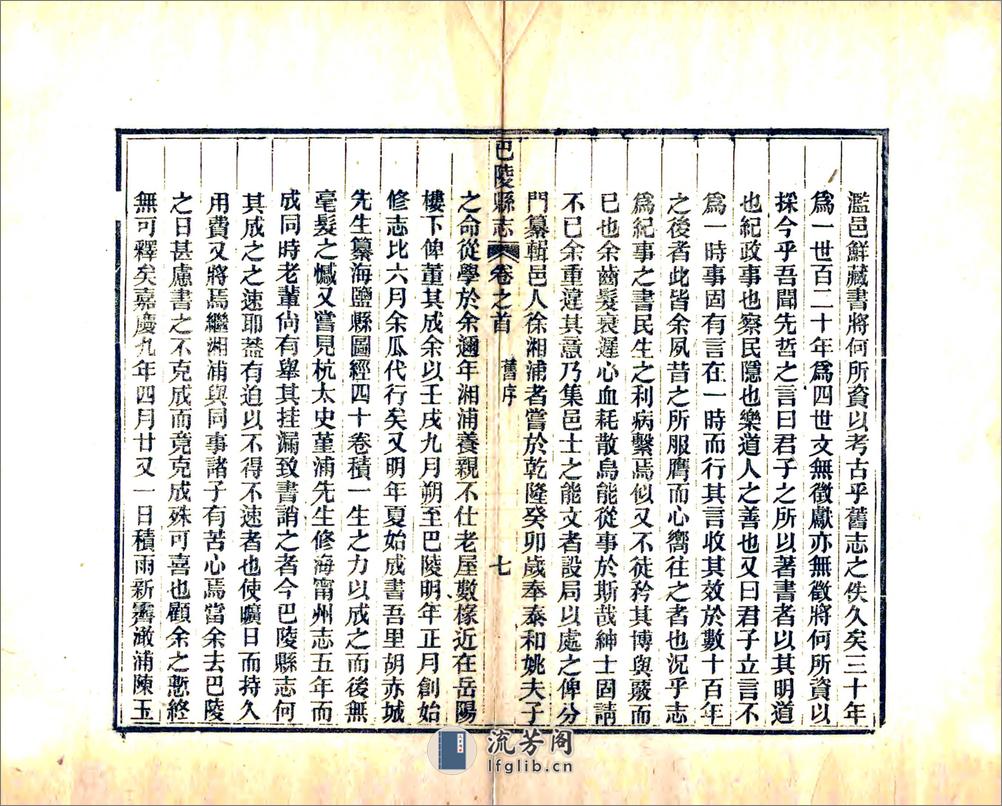 濫邑鮮藏書將何所資以考古乎舊志之佚久矣三十年
爲一世百二十年爲四世文無徵獻亦無徵將何所資以
採今乎吾聞先哲之言曰君子之所以著書者以其明道
也紀政事也察民隱也樂道人之善也又曰君子立言不
爲一時事固有言在一時而行其言收其效於數十百年
之後者此皆余夙昔之所服膺而心嚮往之者也況乎志
爲紀事之書民生之利病繫焉似又不徒矜其博與覈而
已也余齒髮衰遲心血耗散烏能從事於斯哉紳士固請
不已余重違其意乃集邑士之能文者設局以處之俾分
門纂輯邑人徐湘浦者嘗於乾隆癸卯歲奉泰和姚夫子
巴陵縣志 卷之首 舊序 七
之命從學於余邇年湘浦養親不仕老屋數椽近在岳陽
樓下俾董其成余以壬戌九月朔至巴陵明年正月創始
修志比六月余瓜代行矣又明年夏始成書吾里胡赤城
先生纂海鹽縣圖經四十卷積一生之力以成之而後無
毫髮之憾又嘗見杭太史堇浦先生修海甯州志五年而
成同時老董尙有舉其挂漏致書誚之者今巴陵縣志何
其成之之速耶葢有迫以不得不速者也使曠日而持久
用費又將焉繼湘浦與同事諸子有苦心焉當余去巴陵
之日甚慮書之不克成而竟克成殊可喜也顧余之慙終
無可釋矣嘉慶九年四月廿又一日積雨新霽澉浦陳玉
流芳阁
lfglib.cn